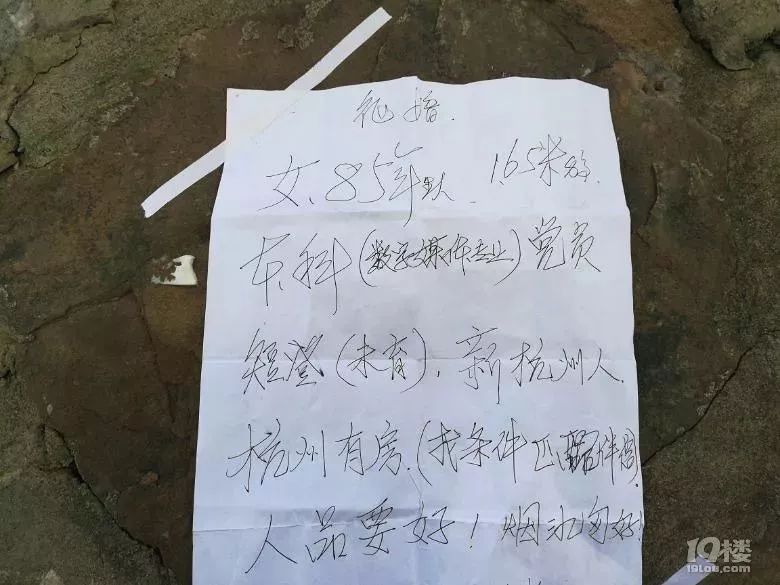 征婚.
女.85年 1.65米
本科(数字媒体专业)党员
短 (未育), 新杭州人.
杭州有房.(找条件匹配伴侣
人品要好!烟 好!
19楼
19lou.com